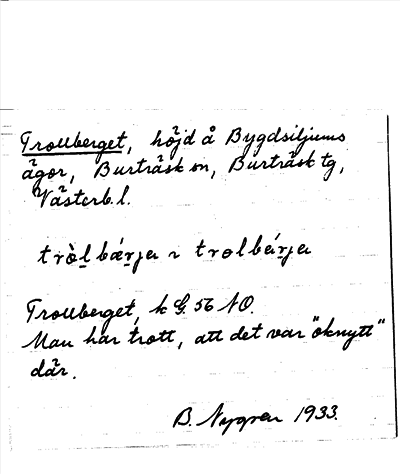 Trollberget, höjd å Bygdsiljums
ägor, Burträsk sn, Burträsk tg,
Västerb. l.
Trollberget, k G. 56 NO.
Man har trott, att det var "oknytt"
där.
B. Nygren 1933.